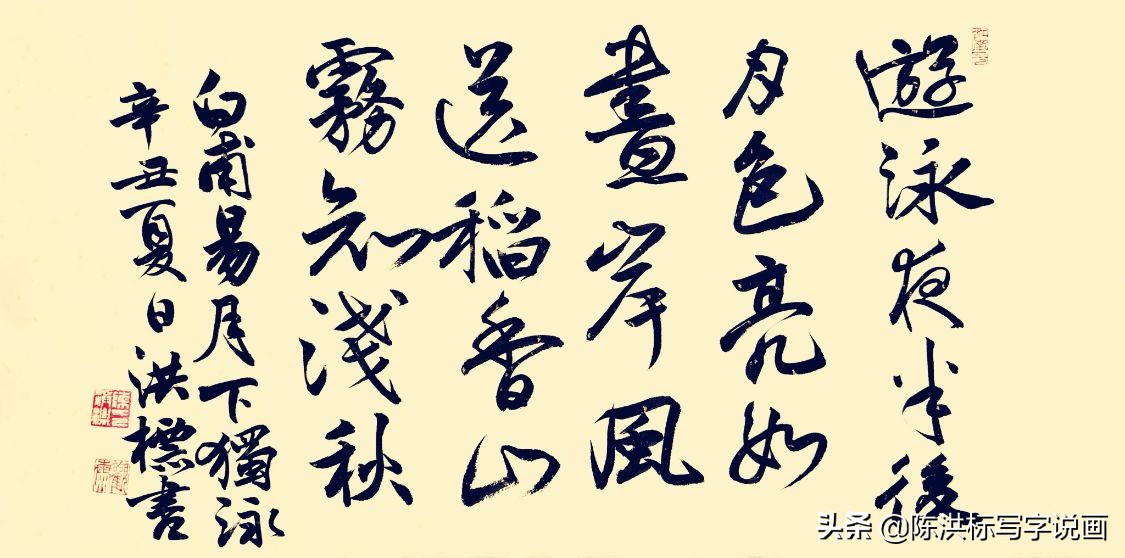 遊泳夜半後
月色亮如
晝岸風
送稻香山
霧知淺秋
白甫易月下獨泳
辛丑夏日洪標書
头条 @陈洪标写字说画